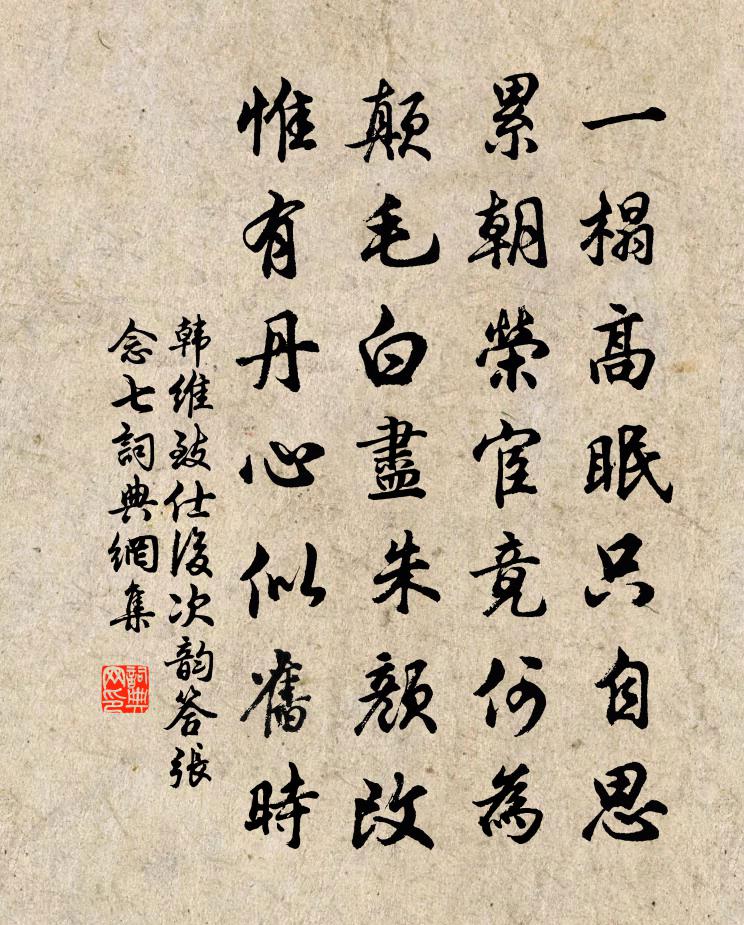 一榻高眠只自思
累朝榮宦竟何為
顛毛白盡朱顏改
惟有丹心似舊時
韩維致仕後次韵答張
念七詞典網集
詞典网印